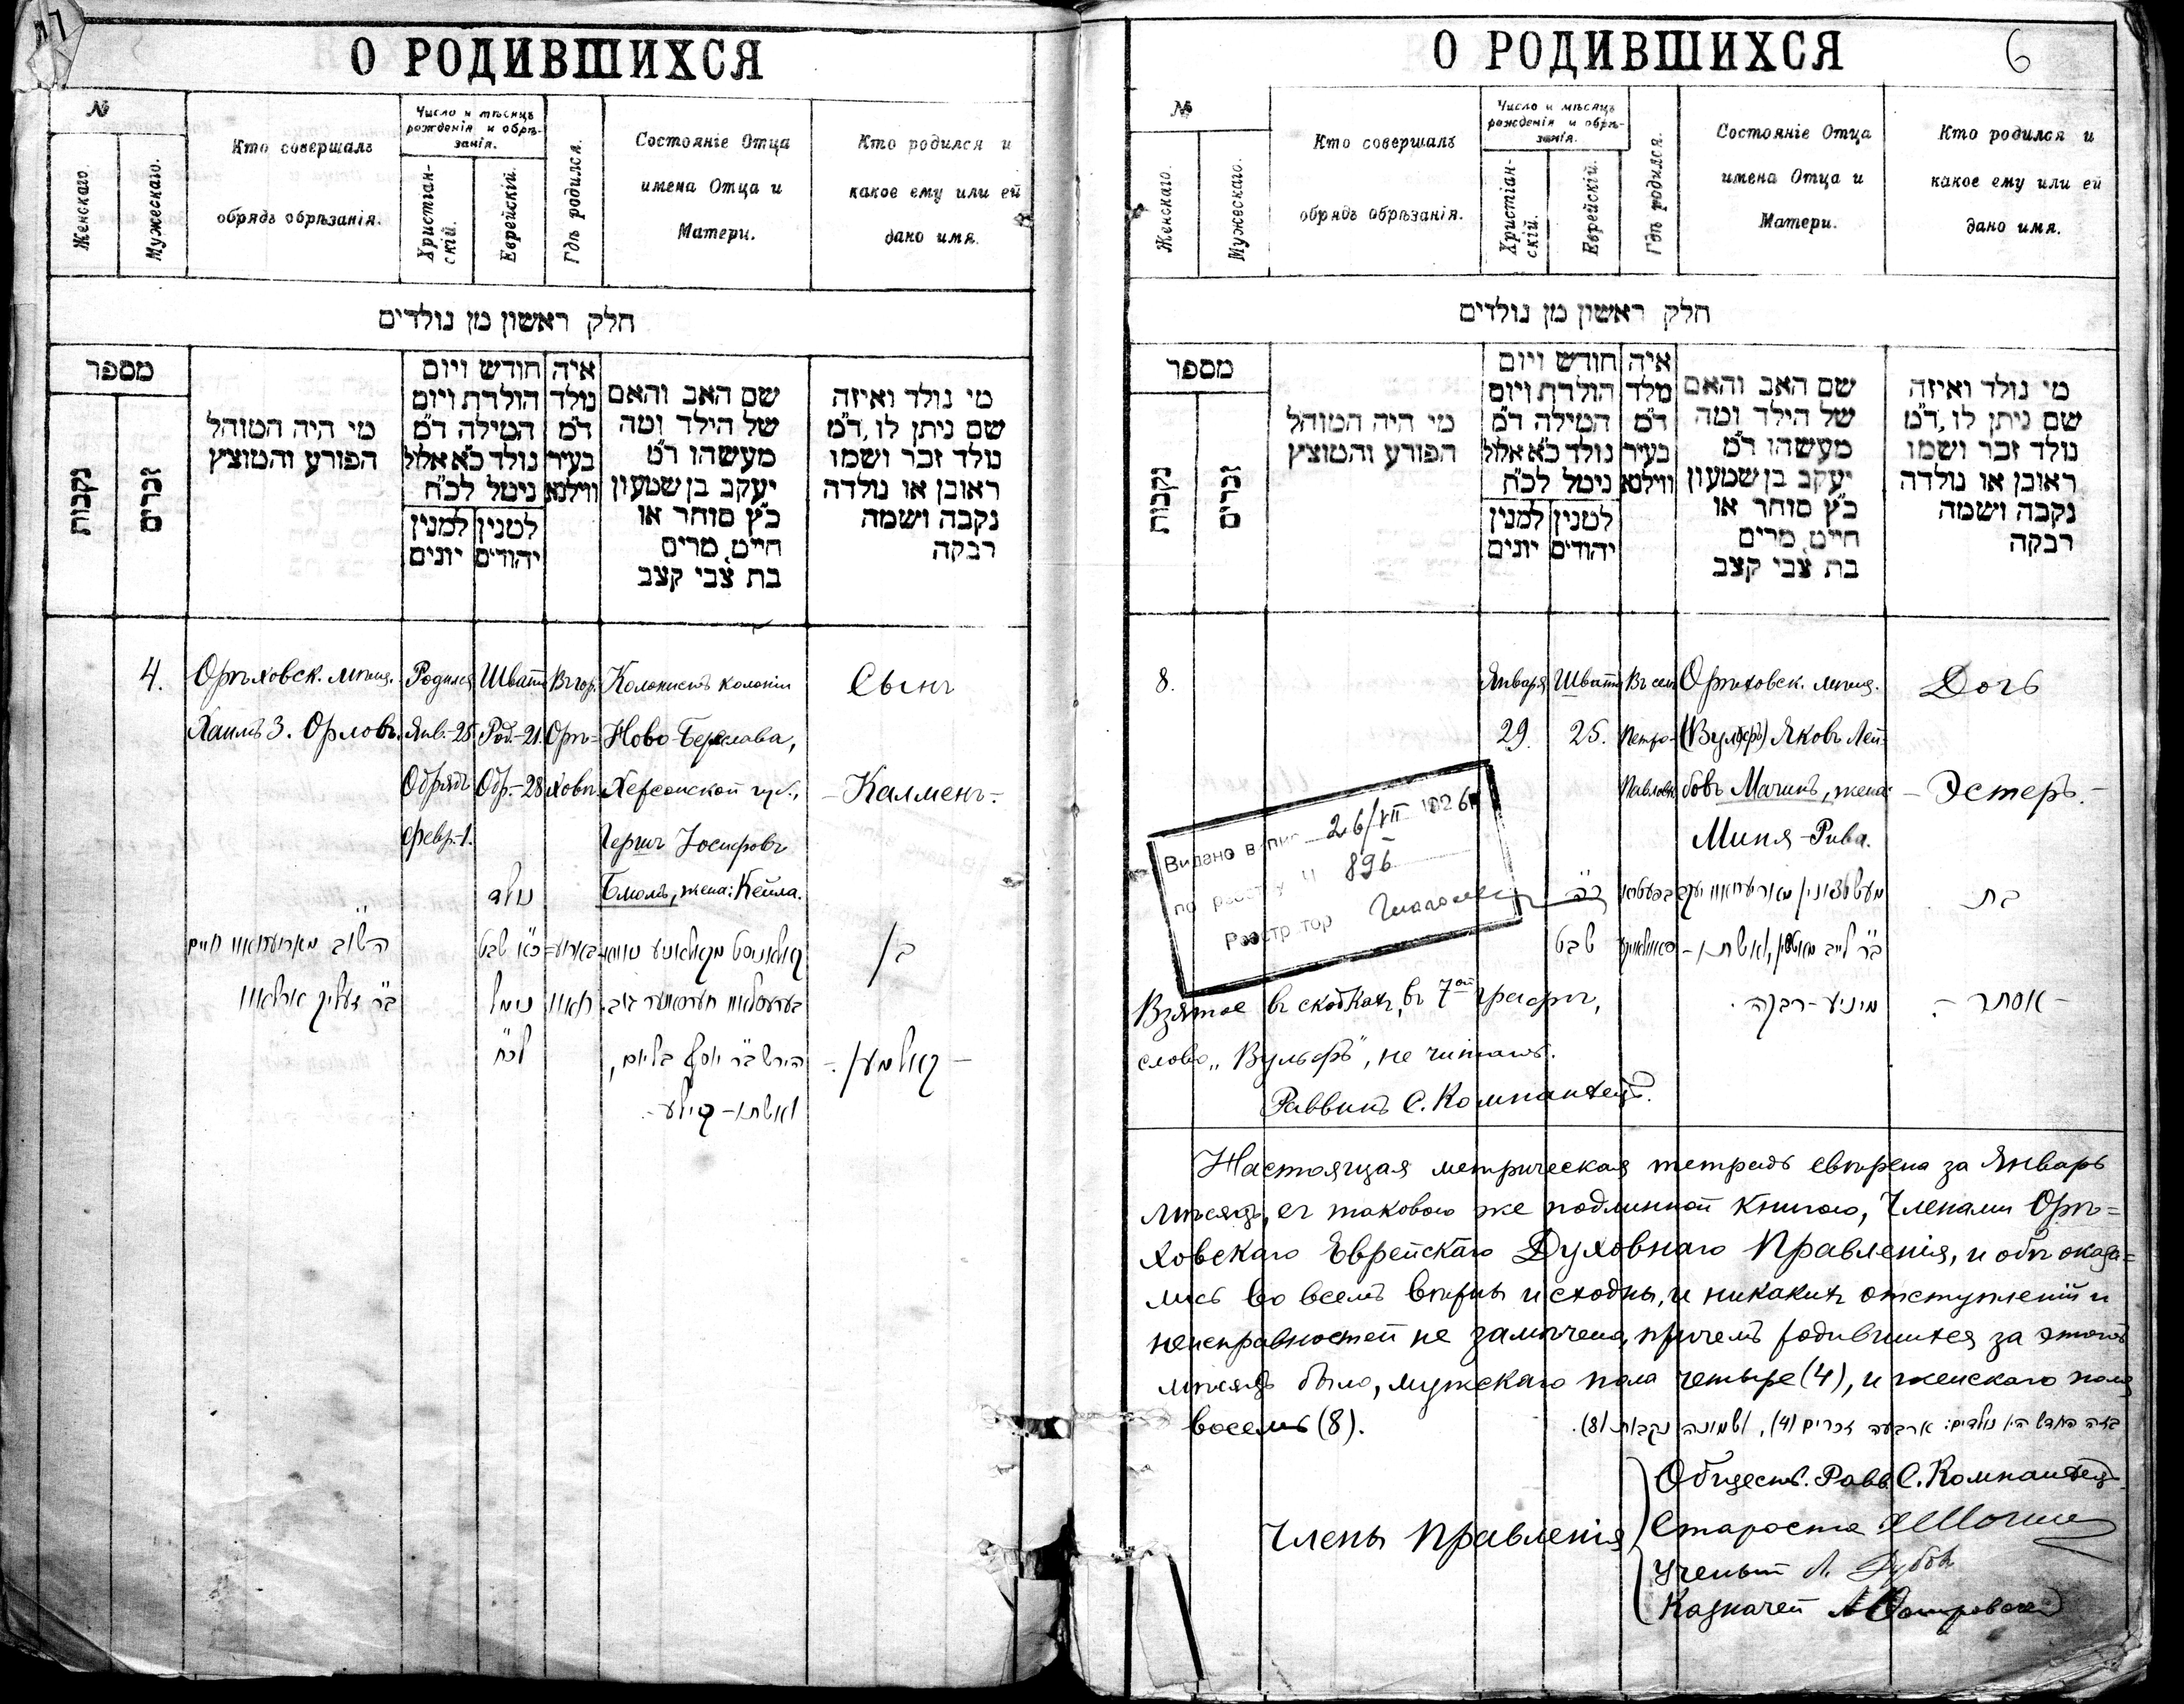 О РОДИВШИХСЯ
№
Женскаго.
Мужескаго.
Кто совершалъ
обрядъ обрѣзанія.
Число и мѣсяцъ
рожденія и обрѣ-
занія.
Христіан-
скій.
Еврейскій.
Гдѣ родился.
Состояніе Отца
имена Отца и
Матери.
Кто родился и
какое ему или ей
дано имя.
חלק ראשון מן נולדים
מספר
נקבות
זכרים
מי היה המוהל
הפורע והמוצץ
חודש ויום
הולדת ויום
המילה ד״מ
נולד כ״א אלול
נימל לכ״ח
למנין יהודים
למנין יונים
איה
נולד
ד״מ
בעיר
ווילנא
שם האב והאם
של הילד ומה
מעשהו ד״מ
יעקב בן שמעון
כ״ץ סוחר או
חייט, מרים
בת צבי קצב
מי נולד ואיזה
שם ניתן לו, ד״מ
נולד זכר ושמו
ראובן או נולדה
נקבה ושמה
רבקה
4.
Орѣховск. мѣщ.
Хаимъ З. Орловъ.
Родился
Янв.-25
Обрядъ
февр.-1.
Шватъ
Род.-21.
Обр.-28
Въ гор.
Орѣ-
ховѣ
Колонистъ колоніи
Ново-Береслава,
Херсонской губ.,
Гершъ Іосифовъ
Блюмъ, жена: Кейла.
Сынъ
- Калменъ.-
נולד
כ״א שבט
נימל
לכ״ח
הירש ב״ר יוסף בלום,
ואשתו - קיילע -
בן
- קאלמען -
О РОДИВШИХСЯ
6
№
Женскаго.
Мужескаго.
Кто совершалъ
обрядъ обрѣзанія.
Число и мѣсяцъ
рожденія и обрѣ-
занія.
Христіан-
скій.
Еврейскій.
Гдѣ родился.
Состояніе Отца
имена Отца и
Матери.
Кто родился и
какое ему или ей
дано имя.
חלק ראשון מן נולדים
מספר
נקבות
זכרים
מי היה המוהל
הפורע והמוצץ
חודש ויום
הולדת ויום
המילה ד״מ
נולד כ״א אלול
נימל לכ״ח
למנין יהודים
למנין יונים
איה
נולד
ד״מ
בעיר
ווילנא
שם האב והאם
של הילד ומה
מעשהו ד״מ
יעקב בן שמעון
כ״ץ סוחר או
חייט, מרים
בת צבי קצב
מי נולד ואיזה
שם ניתן לו, ד״מ
נולד זכר ושמו
ראובן או נולדה
נקבה ושמה
רבקה
8.
Января
29.
Шватъ
25.
Въ сел.
Петро-
Павловк.
Орѣховск. мѣщ.
(Вульфъ) Яковъ Лей-
бовъ Мачинъ, жена:
Миня-Рива.
Дочь
- Эстеръ.-
כ״ה
שבט
מיניע - רבקה.
בת
- אסתר -
Видано випис 26/VII 1926
по реєстру Ч 896
Реєстратор
Взятое въ скобкахъ, въ 7ой графѣ,
слово „Вульфъ", не читать.
Раввинъ С. Компанѣецъ.
Настоящая метрическая тетрадь свѣрена за Январь
мѣсяцъ, съ таковою же подлинной книгою, Членами Орѣ-
ховскаго Еврейскаго Духовнаго Правленія, и обѣ оказа-
лись во всемъ вѣрны и сходны, и никакихъ отступленій и
неисправностей не замѣчено, причемъ родившихся за этотъ
мѣсяцъ было, мужскаго пола четыре (4), и женскаго пола
восемь (8).
בזה החדש היו נולדים: ארבעה זכרים (4), ושמונה נקבות (8).
Члены Правленія
Обществ. Равв. С. Компанѣецъ
Староста
Ученый Л. Дубов
Казначей А Островской